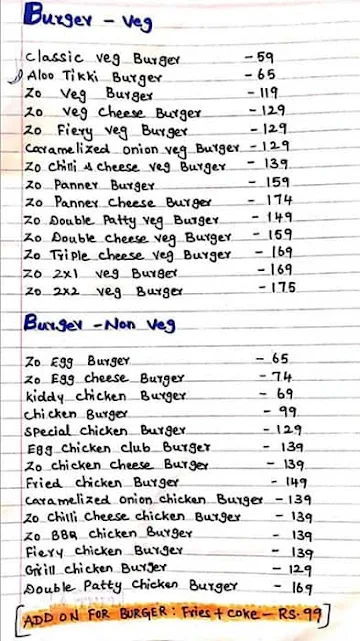 Burger - Veg
Classic Veg Burger - 59
Aloo Tikki Burger - 65
Zo Veg Burger - 119
Zo Veg Cheese Burger - 129
Zo Fiery Veg Burger - 129
Caramelized Onion Veg Burger - 129
Zo Chilli & Cheese Veg Burger - 139
Zo Panner Burger - 159
Zo Panner Cheese Burger - 174
Zo Double Patty Veg Burger - 149
Zo Double Cheese Veg Burger - 159
Zo Triple Cheese Veg Burger - 169
Zo 2x1 Veg Burger - 169
Zo 2x2 Veg Burger - 175
Burger - Non Veg
Zo Egg Burger - 65
Zo Egg Cheese Burger - 74
Kiddy Chicken Burger - 69
Chicken Burger - 99
Special Chicken Burger - 129
Egg Chicken Club Burger - 139
Zo Chicken Cheese Burger - 139
Fried Chicken Burger - 149
Caramelized Onion Chicken Burger - 139
Zo Chilli Cheese Chicken Burger - 139
Zo BBQ Chicken Burger - 139
Fiery Chicken Burger - 139
Grill Chicken Burger - 129
Double Patty Chicken Burger - 169
[ADD ON FOR BURGER: Fries + Coke - RS. 99]